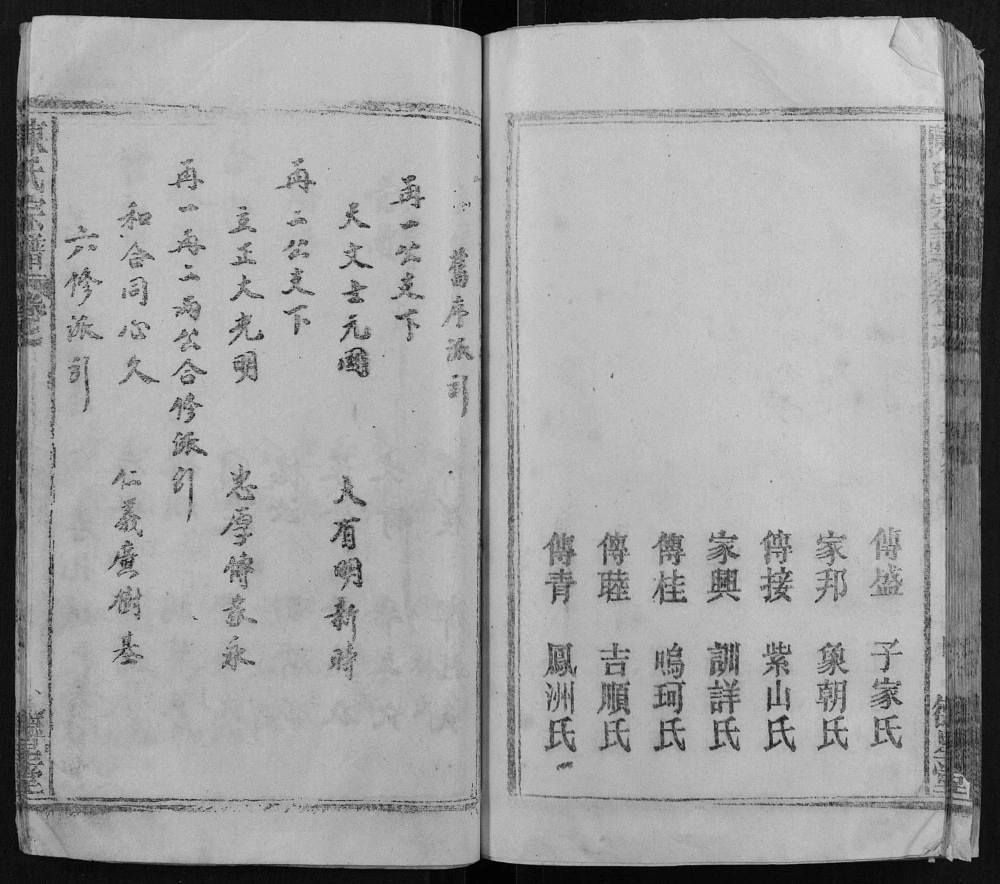 傳盛 子家氏
家邦 象朝氏
傳接 紫山氏
家興 訓詳氏
傳桂 鳴珂氏
傳睦 吉順氏
傳青 鳳洲氏
舊序派引
再一公支下
天文士元國 大有明新時
再二公支下
立正大光明 忠厚傳家永
再一再二兩公合修派引
和合同心久 仁義廣樹基
六修派引
陳氏宗譜